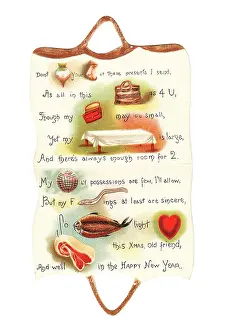 Dont your at these presents I send,
As all in this is 4 U,
Though my may too small,
Yet my is large,
And theres always enough room for 2.
My ly possessions are few, I'll allow,
But my F ings at least are sincere,
So light
this Xmas, old friend,
And well in the HAPPY NEW YEAR.